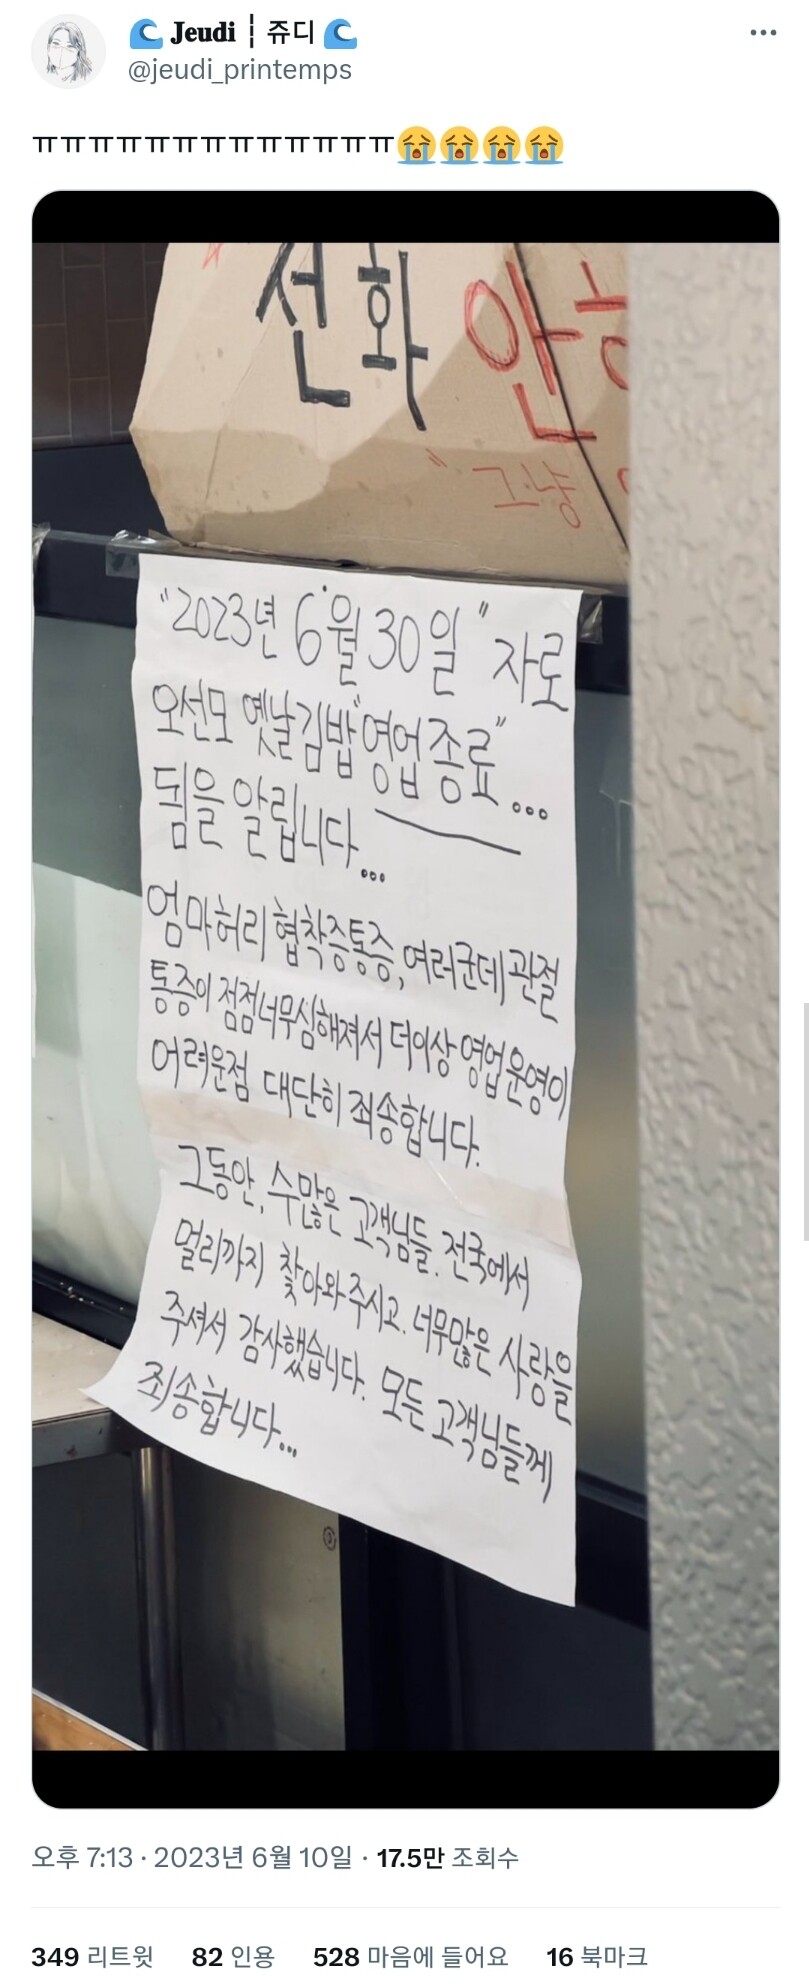 Jeudi ┊ 쥬디
@jeudi_printemps
ㅠㅠㅠㅠㅠㅠㅠㅠㅠㅠㅠㅠㅠ😭😭😭😭
전화 안
"그냥
"2023년 6월 30일" 자로
오선모 옛날김밥 "영업종료"...
됨을 알립니다...
엄마허리 협착증통증, 여러군데 관절
통증이 점점너무심해져서 더이상 영업운영이
어려운점 대단히 죄송합니다.
그동안, 수많은 고객님들. 전국에서
멀리까지 찾아와주시고. 너무많은 사랑을
주셔서 감사했습니다. 모든 고객님들께
죄송합니다...
오후 7:13 · 2023년 6월 10일 · 17.5만 조회수
349 리트윗 82 인용 528 마음에 들어요 16 북마크